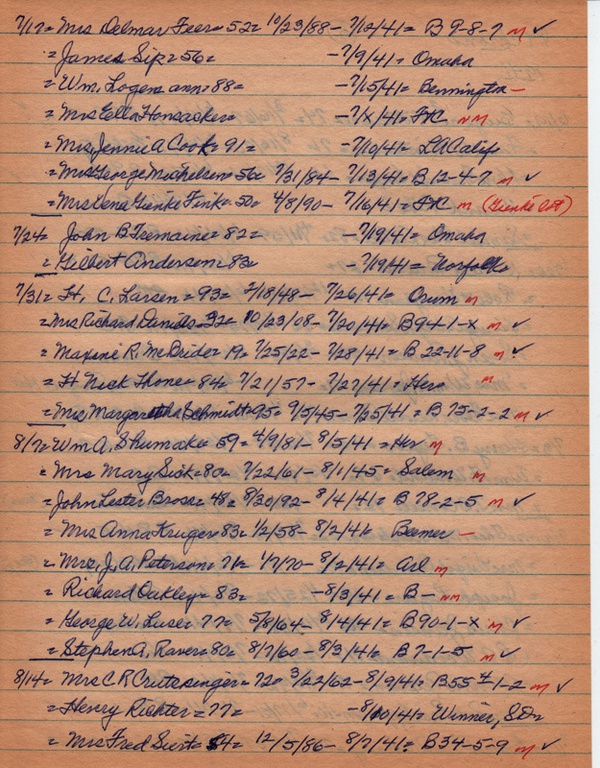 7/17= Mrs Delmar Feer= 52= 10/23/88- 7/12/41= B 9-8-7 m ✓
= James Sip= 56= -7/9/41= Omaha
= Wm. Logemann= 88= -7/15/41= Bennington -
= Mrs Ella Honsacker= -7/X/41= FK NM
= Mrs, Jennie A Cook= 91= -7/10/41= LA Calif
= Mrs George Michelsen= 56= 7/31/84- 7/13/41= B 12-4-7 m ✓
= Mrs Lena Gienke Fink= 50= 4/8/90- 7/16/41= FK m (Gienke lot)
7/24= John B Tremaine= 82= -7/19/41= Omaha
= Gilbert Anderson= 83= -7/19/41= Norfolk
7/31= H. C. Larsen= 93= 2/18/48- 7/26/41= Orum m
= Mrs Richard Daniels= 32= 10/23/08- 7/20/41= B94-1-X m ✓
= Maxine R. McBrider 19= 7/25/22- 7/28/41= B 22-11-8 m ✓
= H Nick Thone= 84= 7/21/57- 7/27/41= Her m
= Mrs, Margaretha Schmidt= 95= 9/5/45- 7/25/41= B 75-2-2 m ✓
8/7= Wm A. Shumake= 59= 4/9/81- 8/5/41= Her m
= Mrs Mary Sick= 80= 7/22/61- 8/1/45= Salem m
= John Lester Bross= 48= 8/20/92- 8/4/41= B 78-2-5 m ✓
= Mrs Anna Kruger= 83= 1/2/58- 8/2/41= Beemer -
= Mrs, J, A, Peterson= 71= 1/7/70- 8/2/41= Arl m
= Richard Oakley= 83= -8/3/41= B- NM
= George W. Luse= 77= 5/8/64- 8/4/41= B90-1-X m ✓
= Stephen A. Raver= 80= 8/7/60- 8/3/41= B 7-1-5 m ✓
8/14= Mrs C R Crutesinger= 72= 3/22/62- 8/9/41= B55 4-1-2 m ✓
= Henry Richter= 77= -8/10/41= Winner, S.D=
= Mrs Fred Siert= 54= 12/5/86- 8/7/41= B34-5-9 m ✓